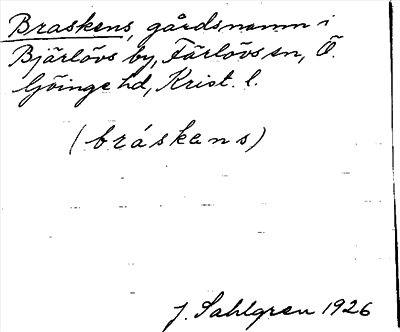 Braskens, gårdsnamn i
Bjärlövs by, Färlövs sn, Ö.
Göinge hd, Krist. l.
(bráskens)
J. Sahlgren 1926